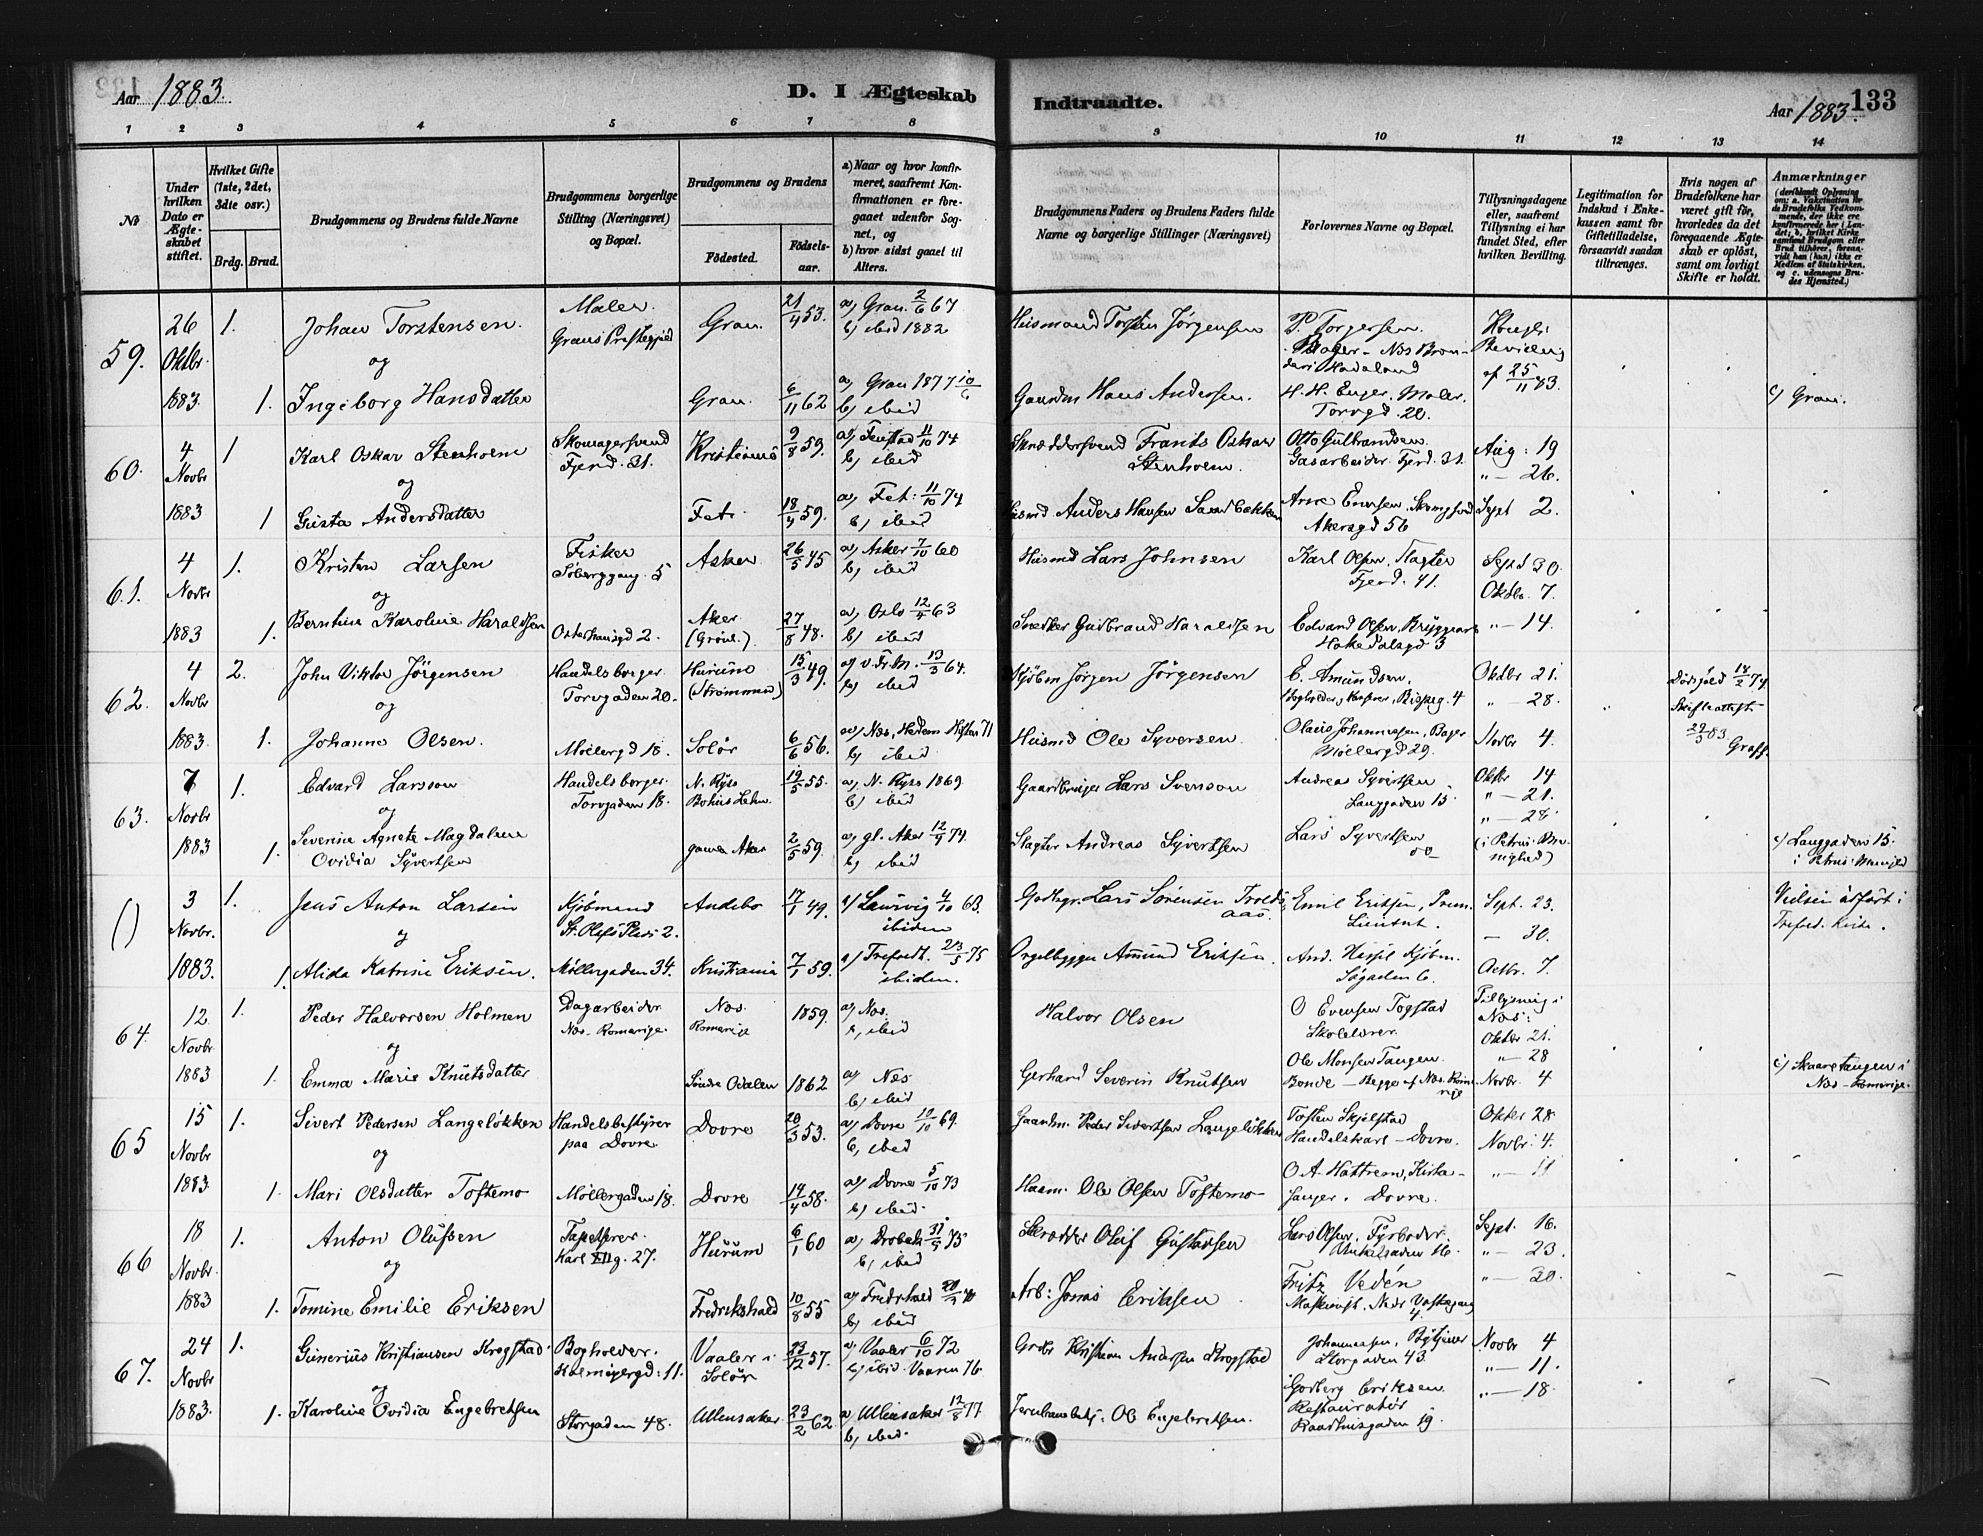 Aar 1883.
D. I Ægteskab
Indtraadte.
Aar 1883. 133
1 2 3 4 5 6 7 8
9 10 11 12 13 14
No
Under hvilken Dato er Ægteskabet stiftet.
Hvilket Gifte (1ste, 2det, 3die osv.)
Brdg. Brud.
Brudgommens og Brudens fulde Navne
Brudgommens borgerlige Stilling (Næringsvei) og Bopæl.
Brudgommens og Brudens
Födested.
Födselsaar.
a) Naar og hvor konfirmeret, saafremt Konfirmationen er foregaaet udenfor Sognet, og
b) hvor sidst gaaet til Alters.
Brudgommens Faders og Brudens Faders fulde Navne og borgerlige Stillinger (Næringsvei)
Forlovernes Navne og Bopæl.
Tillysningsdagene eller, saafremt Tillysning ei har fundet Sted, efter hvilken Bevilling.
Legitimation for Indskud i Enkekassen samt for Giftetilladelse, forsaavidt saadan tiltrænges.
Hvis nogen af Brudefolkene har været gift för, hvorledes da det foregaaende Ægteskab er oplöst, samt om lovligt Skifte er holdt.
Anmærkninger
(deriblandt Oplysning om: a. Vakcination for de Brudefolks Vedkommende, der ikke ere konfirmerede her i Landet; b. hvilket Kirkesamfund Brudgom eller Brud tilhörer, forsaavidt han (hun) ikke er Medlem af Statskirken, og c. udensogns Brudes Hjemsted.)
59. 26 Oktbr. 1883.
1. Johan Torstensen. Maler. Grans Prestegjeld Gran. 21/4 53. a) Gran 2/6 67 b) ibid 1882
Husmand Torsten Jörgensen P. Torgersen. Hadeland
og
1. Ingeborg Hansdatter Gran. 6/11 62 a) Gran 1877 b) ibid
Gaardm Hans Andersen. H. H. Enger. Maler. Torvgd 20. c) Gran.
60. 4 Novbr 1883
1 Karl Oskar Stenholm Skomagersvend Fjerd. 21. Kristiania 9/8 59. a) 11/10 74 b) ibid
Skræddersvend Frants Oskar Stenholm. Otto Gulbrandsen. Gasarbeider. Fjerd. 21. Aug: 19 " — 26.
og
1 Gusta Andersdatter Fet. 18/4 59. a) Fet: 11/10 74 b) ibid
Husmd Anders Hansen Akersgd 56 Sept 2.
61. 4 Novbr 1883
1. Kristen Larsen Fisker 5 Asker 26/5 45 a) Asker 7/10 60 b) ibid
Husmd Lars Johnsen Karl Olsen. Slagter Fjerd. 41. Sept 30. Oktbr. 7.
og
1. Berntine Karoline Haraldsen Osterhausgd 2. Aker (Grönl.) 27/8 48. a) Oslo 12/4 63 b) ibid
Snedker Gudbrand Haraldsen Edvard Olsen, Hakedalsgd 3 " — 14.
62. 4 Novbr 1883.
2. John Viktor Jörgensen Handelsborger Torvgaden 20. Hurum (Strömmen) 15/3 49. a) v. Fr. M. 13/3 64. b) ibid
Kjöbm Jörgen Jörgensen E. Amundsen. 4 Oktbr 21. " — 28. Dödsfald 18/2 74. Skifteattest 29/5 83
og
1. Johanne Olsen. Möllergd 18. Solör 6/6 56. a) Næs, 71 b) ibid
Husmd Ole Syversen. Olaus Johannesen, Bager Möllergd 29. Novbr 4.
63. 7 Novbr 1883
1. Edvard Larsson Handelsborger. Torvgaden 18. 19/5 55. 1869. b) ibid
Gaardbruger Lars Svenson Andreas Syvertsen Langgaden 15. Oktbr 14 " — 21. " — 28.
og
1. Severine Agnete Magdalene Ovidia Syvertsen gamle Aker 2/5 59. a) gl. Aker 12/9 74. b) ibid
Slagter Andreas Syvertsen Lars Syvertsen (i Petrus Menighed) c) Langgaden 15. i Petrus Menighed
() 3 Novbr. 1883.
1. Jens Anton Larsen Kjöbmand St. Olafs Plads 2. Andebo 17/1 49. a) Laurvig 4/10 63. ibidem
Lars Sörensen Troldsaas Emil Eriksen, Prem. Lieutnt. Sept. 23. — 30. Vielsen udfört i Trefold. Kirke.
og
1. Alida Katrine Eriksen. Möllergaden 34. Kristiania 7/1 59. a) Trefoldt. 23/5 75 ibidem.
Orgelbygger Amund Eriksen. And. Kjöbm. Sögaden 6. Octbr. 7.
64. 12 Novbr. 1883
1. Peder Halvorsen Holmen Dagarbeider Næs. Romerige. Næs. Romerige 1859. a) Næs. b) ibid
Halvor Olsen O Evensen Togstad Skolelærer. Tillysning i Næs: Oktbr 21. " — 28
og
1. Emma Marie Knutsdatter Söndre Odalen 1862 a) Næs b) ibid
Gerhard Severin Knutsen Ole Monsen Tangen. Bonde — Begge af Næs. Romerige Novbr. 4 c) Skaaretangen i Næs - Romerige.
65 15 Novbr 1883
1. Sivert Pedersen Langelökken Handelsbestyrer paa Dovre Dovre 20/3 53. a) Dovre 10/10 69. b) ibid
Gaardm. Peder Sivertsen Langelökken Torsten Skjelstad Handelskarl — Dovre. Oktbr 28. Novbr. 4.
og
1. Mari Olsdatter Toftemo Möllergaden 18. Dovre 14/4 58. a) Dovre 5/10 73 b) ibid.
Ole Olsen Toftemo O. A. Hattrem, Kirkesanger. Dovre. " — 11
66 18 Novbr. 1883
1. Anton Olufsen Tapetserer. Karl XIIg. 27. Hurum 6/1 60 a) Drobak 31/5 75 b) ibid
Skrædder Oluf Gustavsen Lars Olsen, Fyrböder. Sept. 16. " — 23.
og
1. Tomine Emilie Eriksen Fredrikshald 10/8 55 a) Fredrhald b) ibid
Arb: Jonas Eriksen. Fritz Vedén " — 30.
67. 24 Novbr 1883.
1. Gunerius Kristiansen Krogstad. Bogholder. Holmöiergd: 11. Vaaler i Solör 23/12 57. a) Vaaler 6/10 72 b) ibid. Vaaren 76.
Kristian Andersen Krogstad Johannesen, Storgaden 43. Novbr 4 " — 11.
og
1. Karoline Ovidia Engebretsen Storgaden 48. Ullensaker 23/2 62. a) Ullensaker 12/8 77 b) ibid.
Jernbanebetj: Ole Engebretsen. Godberg Eriksen. Restauratör Raadhusgaden 19. " — 18.